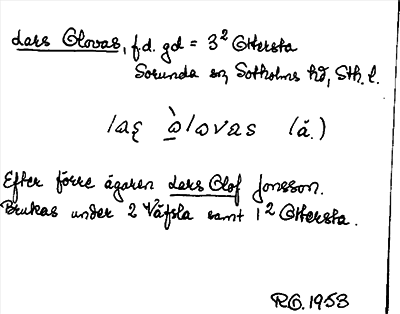 Lars Olovas, f.d. gd = 3² Ottersta
Sorunda sn, Sotholms hd, Sth. l.
(ä.)
Efter förre ägaren Lars Olof Jonsson.
Brukas under 2 Väfsla samt 1² Ottersta.
R.O. 1953